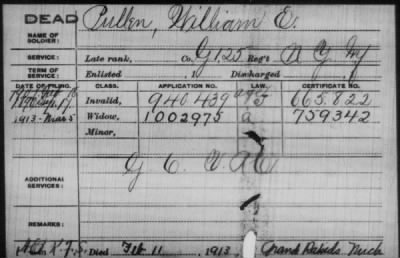 DEAD Pullen, William E.
NAME OF SOLDIER:
SERVICE: Late rank, Co. G, 125 Reg't N Y Inf
TERM OF SERVICE: Enlisted , 1 Discharged
DATE OF FILING. CLASS. APPLICATION NO. LAW. CERTIFICATE NO.
Invalid, 940439 665.822
1913-Mar 5 Widow, 1002975 a 759342
Minor,
ADDITIONAL SERVICES:
REMARKS:
Died Feb 11, 1913, Grand Rapids Mich